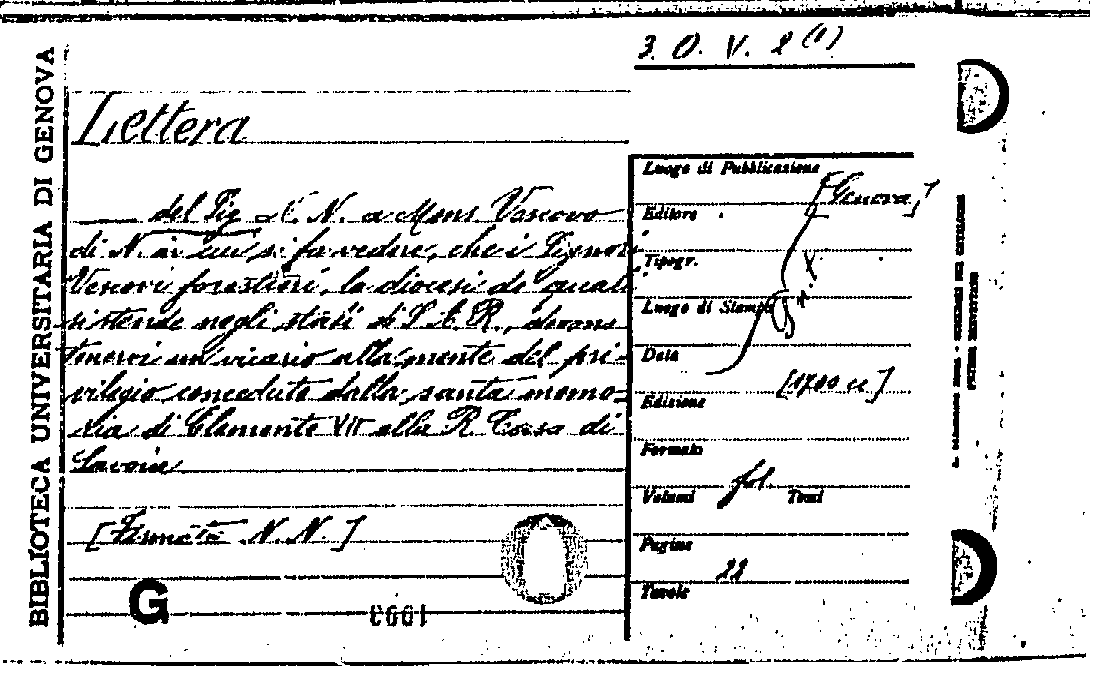 3. O. V. 2 (1)
BIBLIOTECA UNIVERSITARIA DI GENOVA
Lettera
del Sig. N. N. a Mons. Vescovo
di N. in cui si fa vedere, che i Signori
Vescovi forestieri, la diocesi de' quali
si stende negli stati di S. S. R., devono
tenervi un vicario alla mente del pri-
vilegio conceduto dalla santa memo-
ria di Clemente XII alla R. Casa di
Savoia
[Firmata N. N.]
G
1993
Luogo di Pubblicazione
[Genova]
Editore
Tipogr.
Luogo di Stampa
Data
[1700 ...]
Edizione
Formato
Volumi fol. Tomi
Pagine
22
Tavole